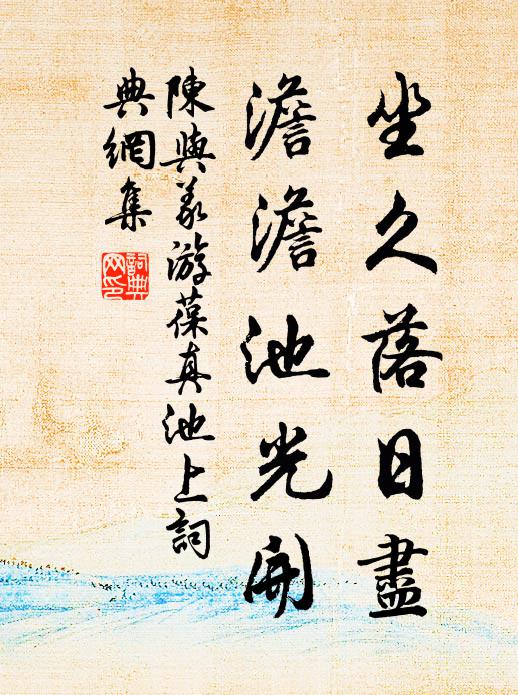 坐久落日盡
澹澹池光開
陳與義游葆真池上詞
典網集
詞典
网印